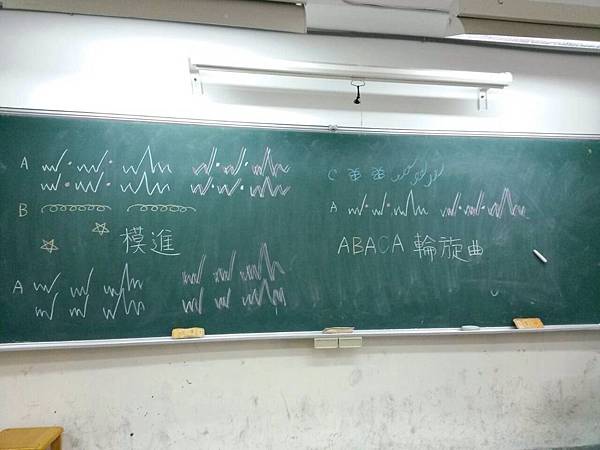 A
B
模進
A
C
A
ABACA 輪旋曲